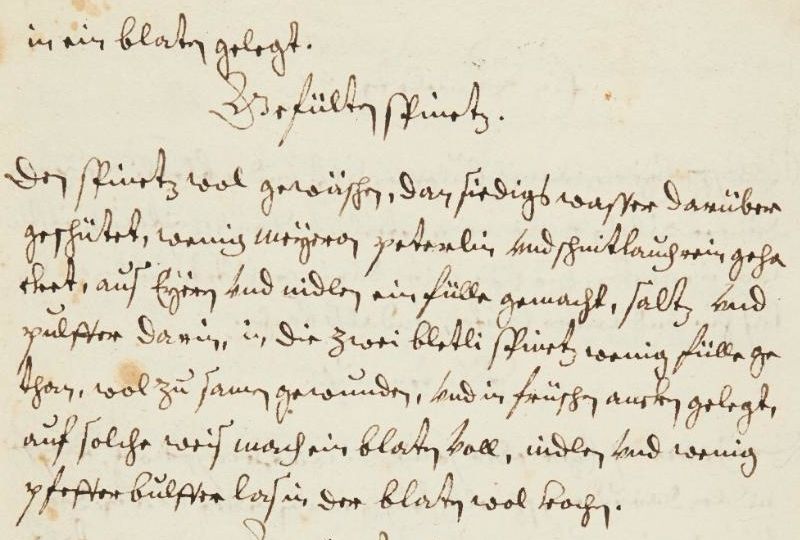 in ein blaten gelegt.
Gefülten spinetz.
Den spinetz wol gewäschen, dan siedigs wasser darüber
geschütet, wenig meyeron peterlin vnd schnitlauch rein geha
cket, aus Eyern vnd nidlen ein fülle gemacht, saltz vnd
pulffer darin, in die zwei bletli spinetz wenig fülle ge
than, wol zu samen gewunden, vnd in früschen ancken gelegt,
auf solche weis mach ein blaten voll, nidlen vnd wenig
pfefferbulffer las in der blaten wol kochen.